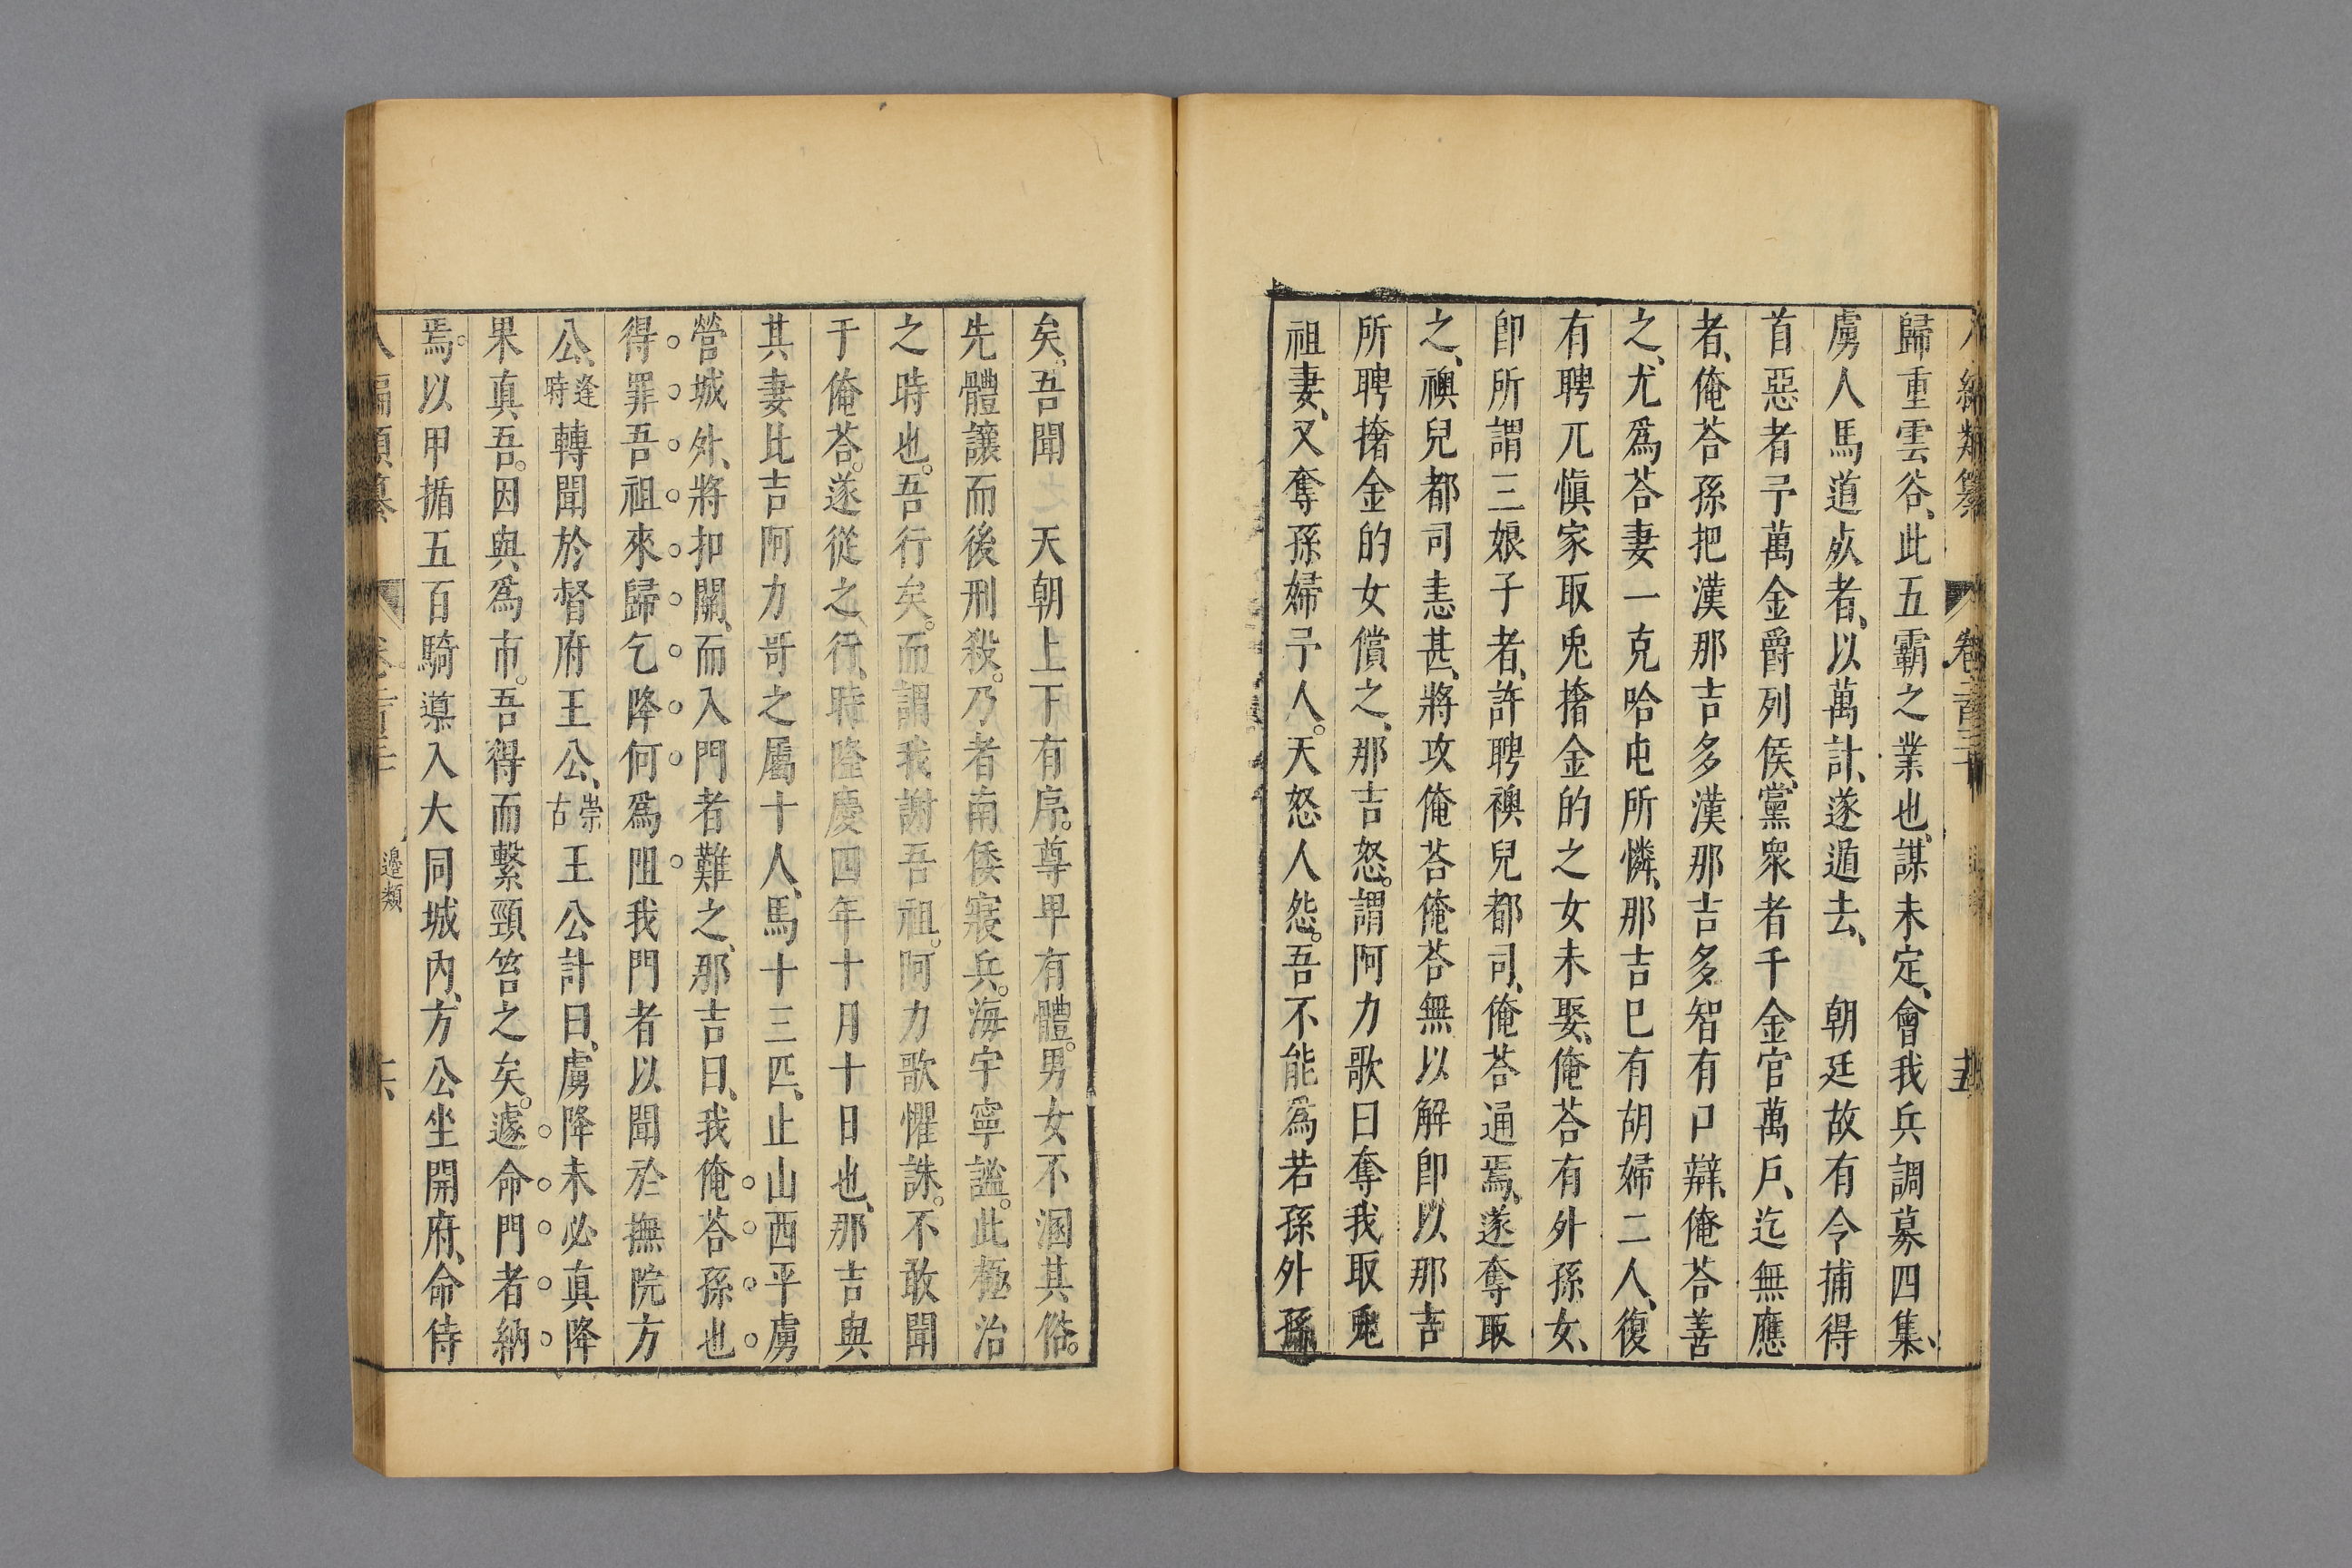 歸重雲谷、此五霸之業也、謀未定、會我兵調募四集、
虜人馬道死者、以萬計、遂遁去、　朝廷故有令捕得
首惡者予萬金爵列侯、黨衆者千金官萬戶、迄無應
者、俺荅孫把漢那吉多漢那吉多智有口辯、俺荅善
之、尤爲荅妻一克哈屯所憐、那吉已有胡婦二人、復
有聘兀愼家取兎撦金的之女未娶、俺荅有外孫女、
卽所謂三娘子者、許聘襖兒都司、俺荅通焉、遂奪取
之、襖兒都司恚甚、將攻俺荅俺荅無以解卽以那吉
所聘撦金的女償之、那吉怒。謂阿力歌曰奪我取兎
祖妻、又奪孫婦予人。天怒人怨。吾不能爲若孫外孫
矣。吾聞　天朝上下有序。尊卑有體。男女不溷其俗。
先體讓而後刑殺。乃者南倭寢兵。海宇寧謐。此極治
之時也。吾行矣。而謂我謝吾祖。阿力歌懼誅。不敢聞
于俺荅。遂從之行、時隆慶四年十月十日也、那吉與
其妻比吉阿力哥之屬十人、馬十三匹、止山西平虜
營城外、將扣關、而入門者難之、那吉曰、我俺荅孫也
得罪吾祖來歸乞降何爲阻我門者以聞於撫院方
公、逢時轉聞於督府王公、崇古王公計曰、虜降未必真降
果真吾。因與爲市。吾得而繫頸笞之矣。遽命門者納
焉。以甲揗五百騎導入大同城內、方公坐開府、命侍
邊類